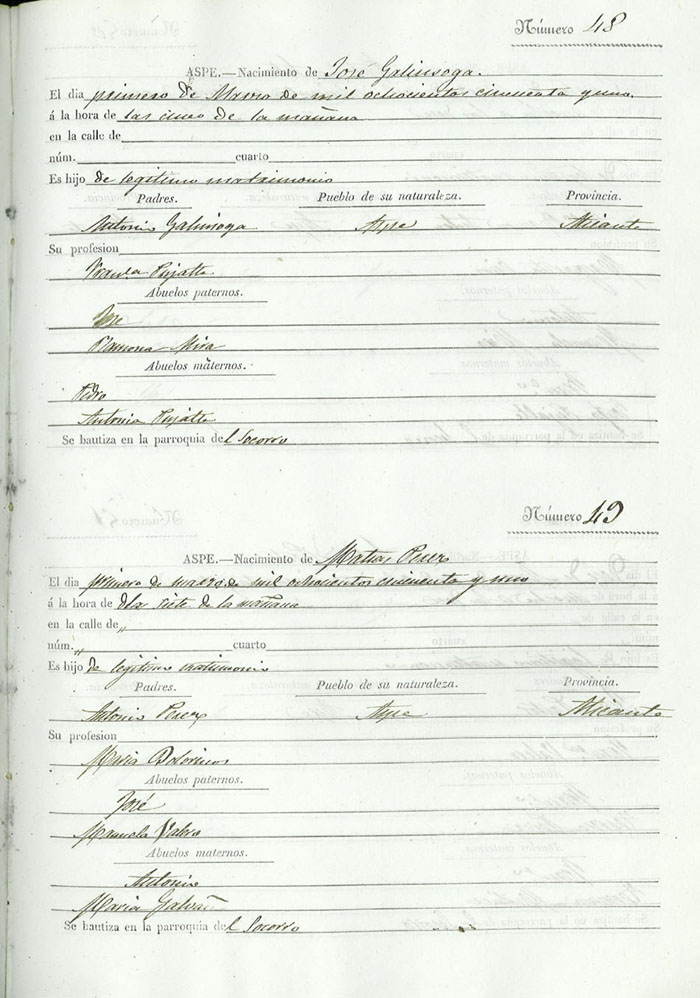 Número 48
ASPE.—Nacimiento de José Galinsoga.
El dia primero de Marzo de mil ochocientos cincuenta y uno.
á la hora de las cinco de la mañana
en la calle de
núm. cuarto
Es hijo de legitimo matrimonio
Padres. Pueblo de su naturaleza. Provincia.
Antonio Galinsoga Aspe Alicante
Su profesion
Abuelos paternos.
José
Ramona Mira
Abuelos maternos.
Pedro
Antonia
Se bautiza en la parroquia del Socorro
Número 49
ASPE.—Nacimiento de Matias Perez
El dia primero de marzo de mil ochocientos cincuenta y uno
á la hora de siete de la mañana
en la calle de „
núm. „ cuarto
Es hijo de legitimo matrimonio
Padres. Pueblo de su naturaleza. Provincia.
Antonio Perez Aspe Alicante
Su profesion
Maria
Abuelos paternos.
José
Manuela
Abuelos maternos.
Antonio
Maria Galvañ
Se bautiza en la parroquia del Socorro